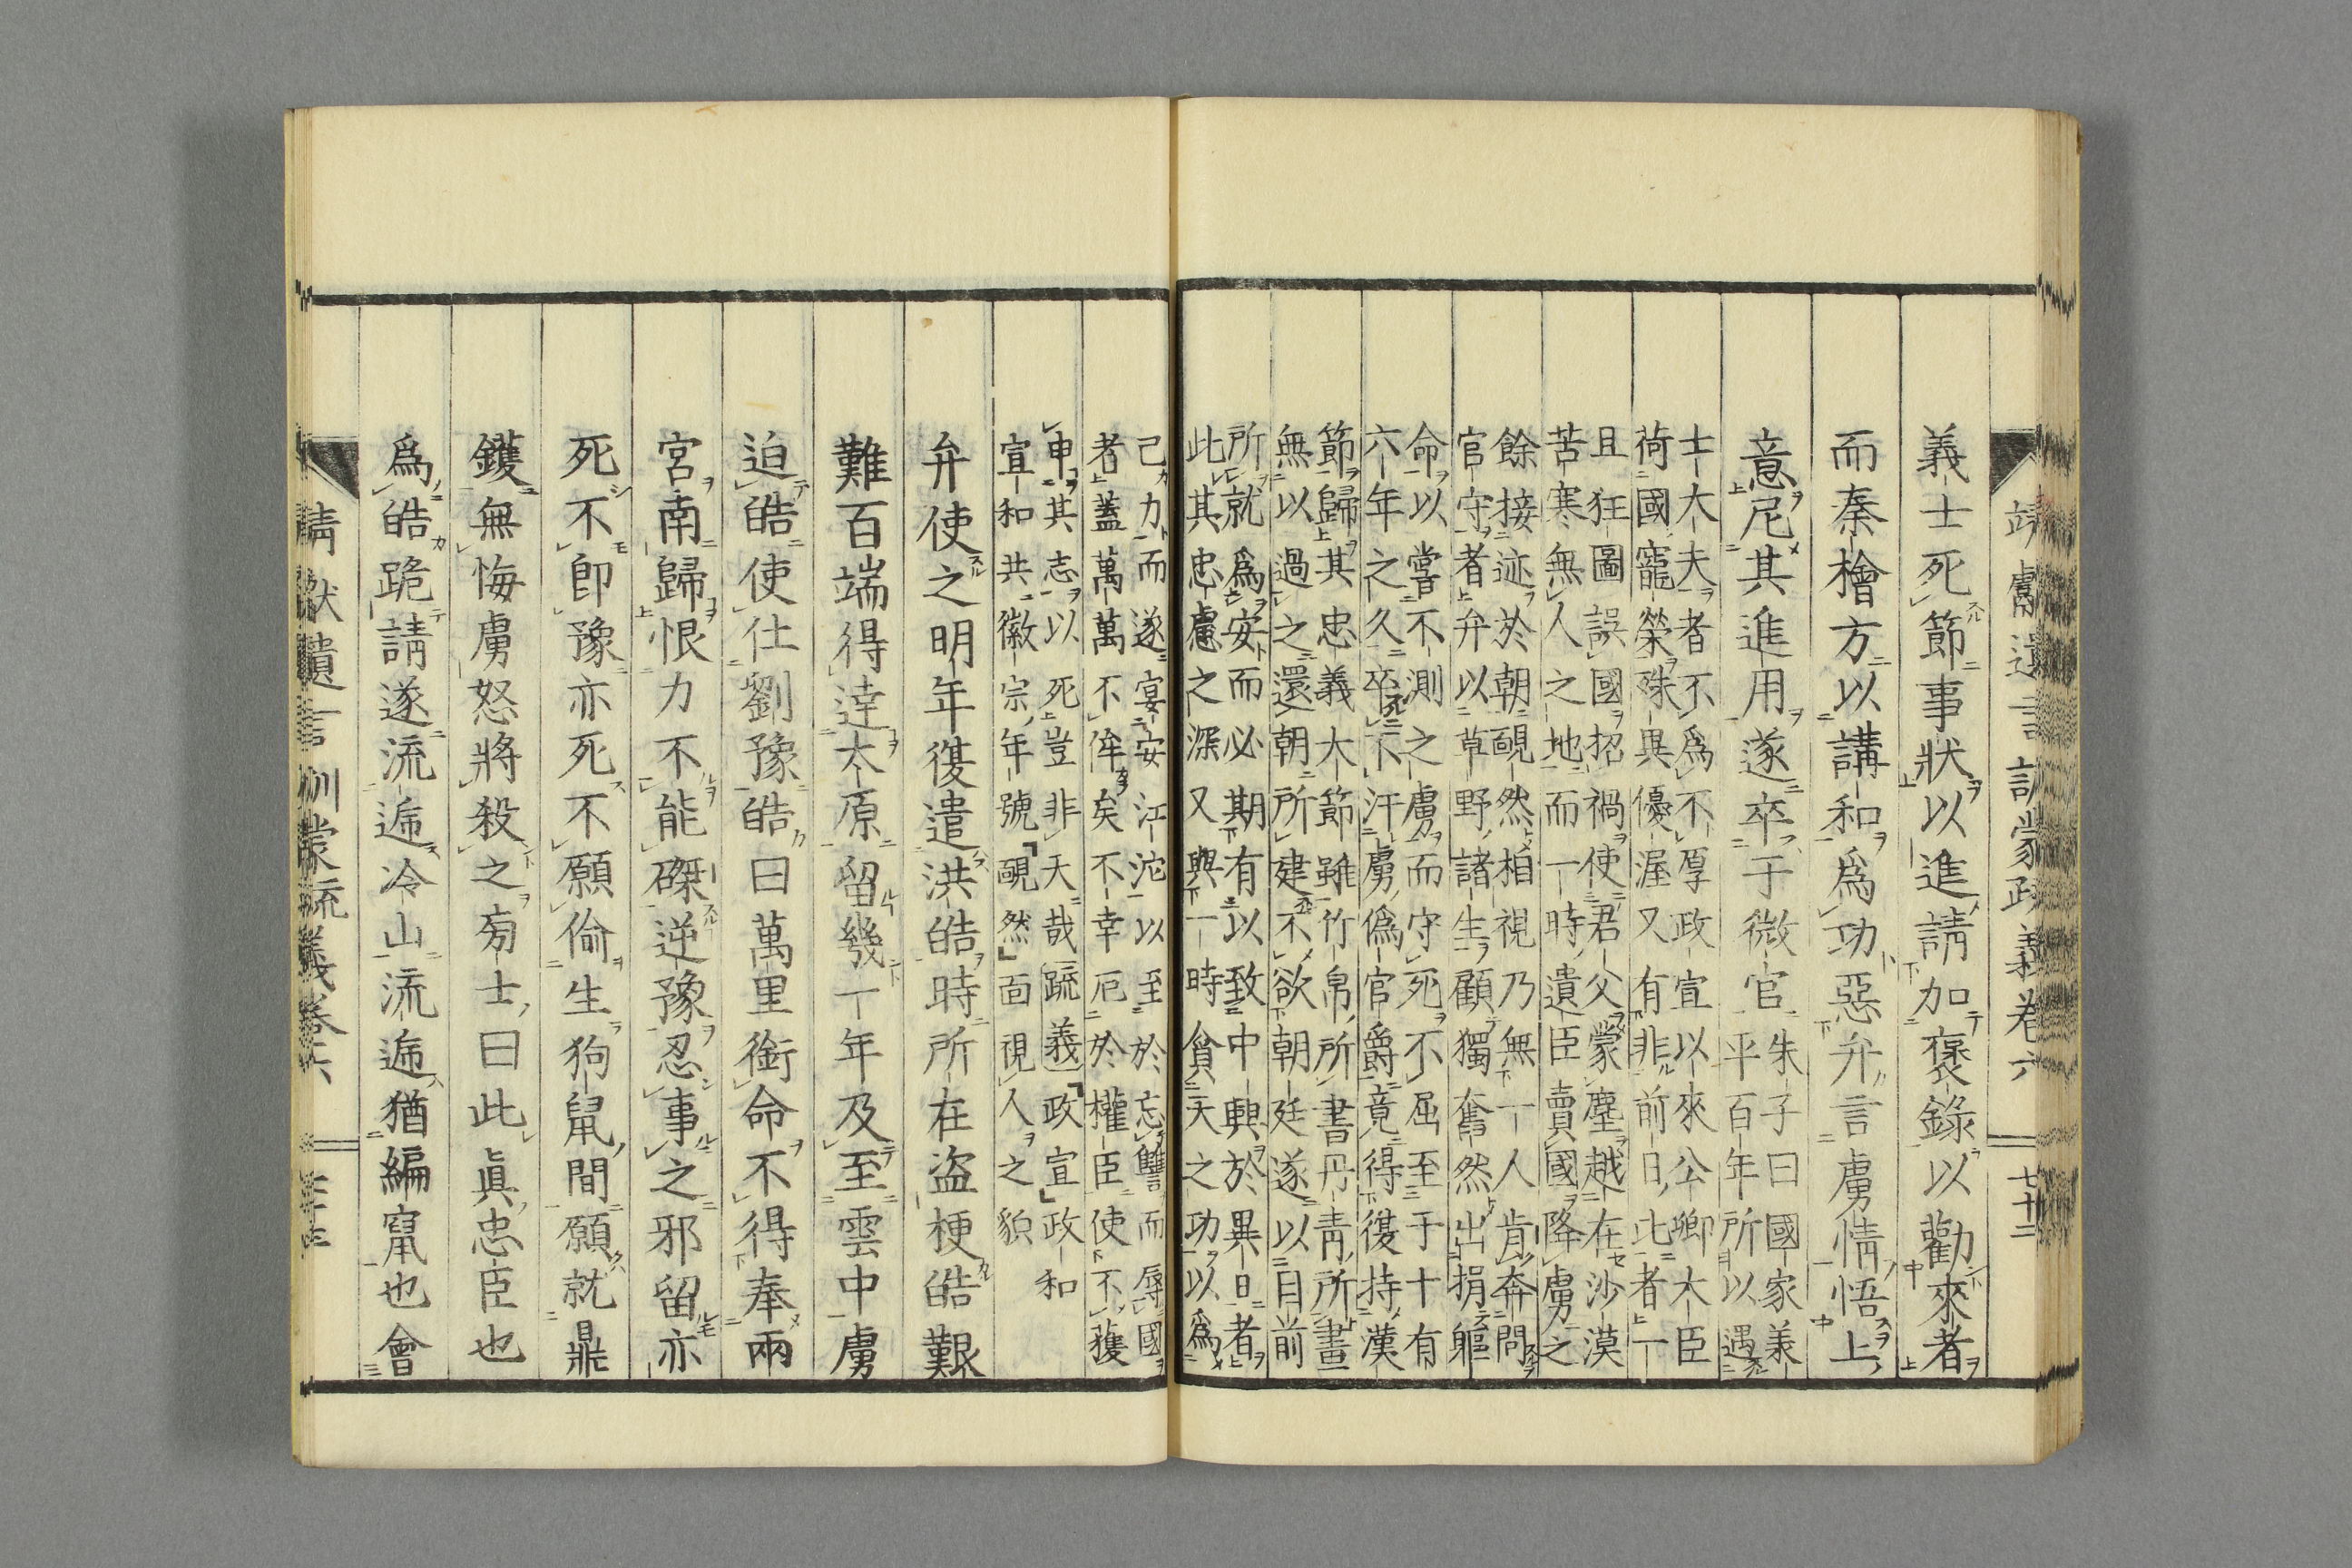 靖獻遺言訓蒙疏義卷六 七十二
義士死節事狀以進請加褒錄以勸來者
而秦檜方以講和爲功惡弁言虜情悟上
意尼其進用遂卒于微官
朱子曰國家義
平百年所以遇
士大夫者不爲不厚政宣以來公卿大臣
荷國寵榮殊異優渥又有非前日比者一
且狂圖誤國招禍使君父蒙塵越在沙漠
苦寒無人之地而一時遺臣賣國降虜之
餘接迹於朝䩄然相視乃無一人肯奔問
官守者弁以草野諸生顧獨奮然出捐軀
命以嘗不測之虜而守死不屈至于十有
六年之久卒不汗虜僞官爵竟得復持漢
節歸其忠義大節雖竹帛所書丹青所畫
無以過之還朝所建不欲朝廷遂以目前
所就爲安而必期有以致中興於異日者
此其忠慮之深又與一時貪天之功以爲
己力而遂宴安江沱以至於忘讐而辱國
者蓋萬萬不侔矣不幸厄於權臣使不獲
申其志以死豈非天哉疏義政宣政和
宣和共徽宗年號䩄然面視人之貌
弁使之明年復遣洪皓時所在盜梗皓艱
難百端得達太原留幾一年及至雲中虜
迫皓使仕劉豫皓曰萬里銜命不得奉兩
宮南歸恨力不能磔逆豫忍事之邪留亦
死不卽豫亦死不願偷生狗鼠間願就鼎
鑊無悔虜怒將殺之旁士曰此眞忠臣也
爲皓跪請遂流遞冷山流遞猶編竄也會
靖獻遺言訓蒙疏義卷六